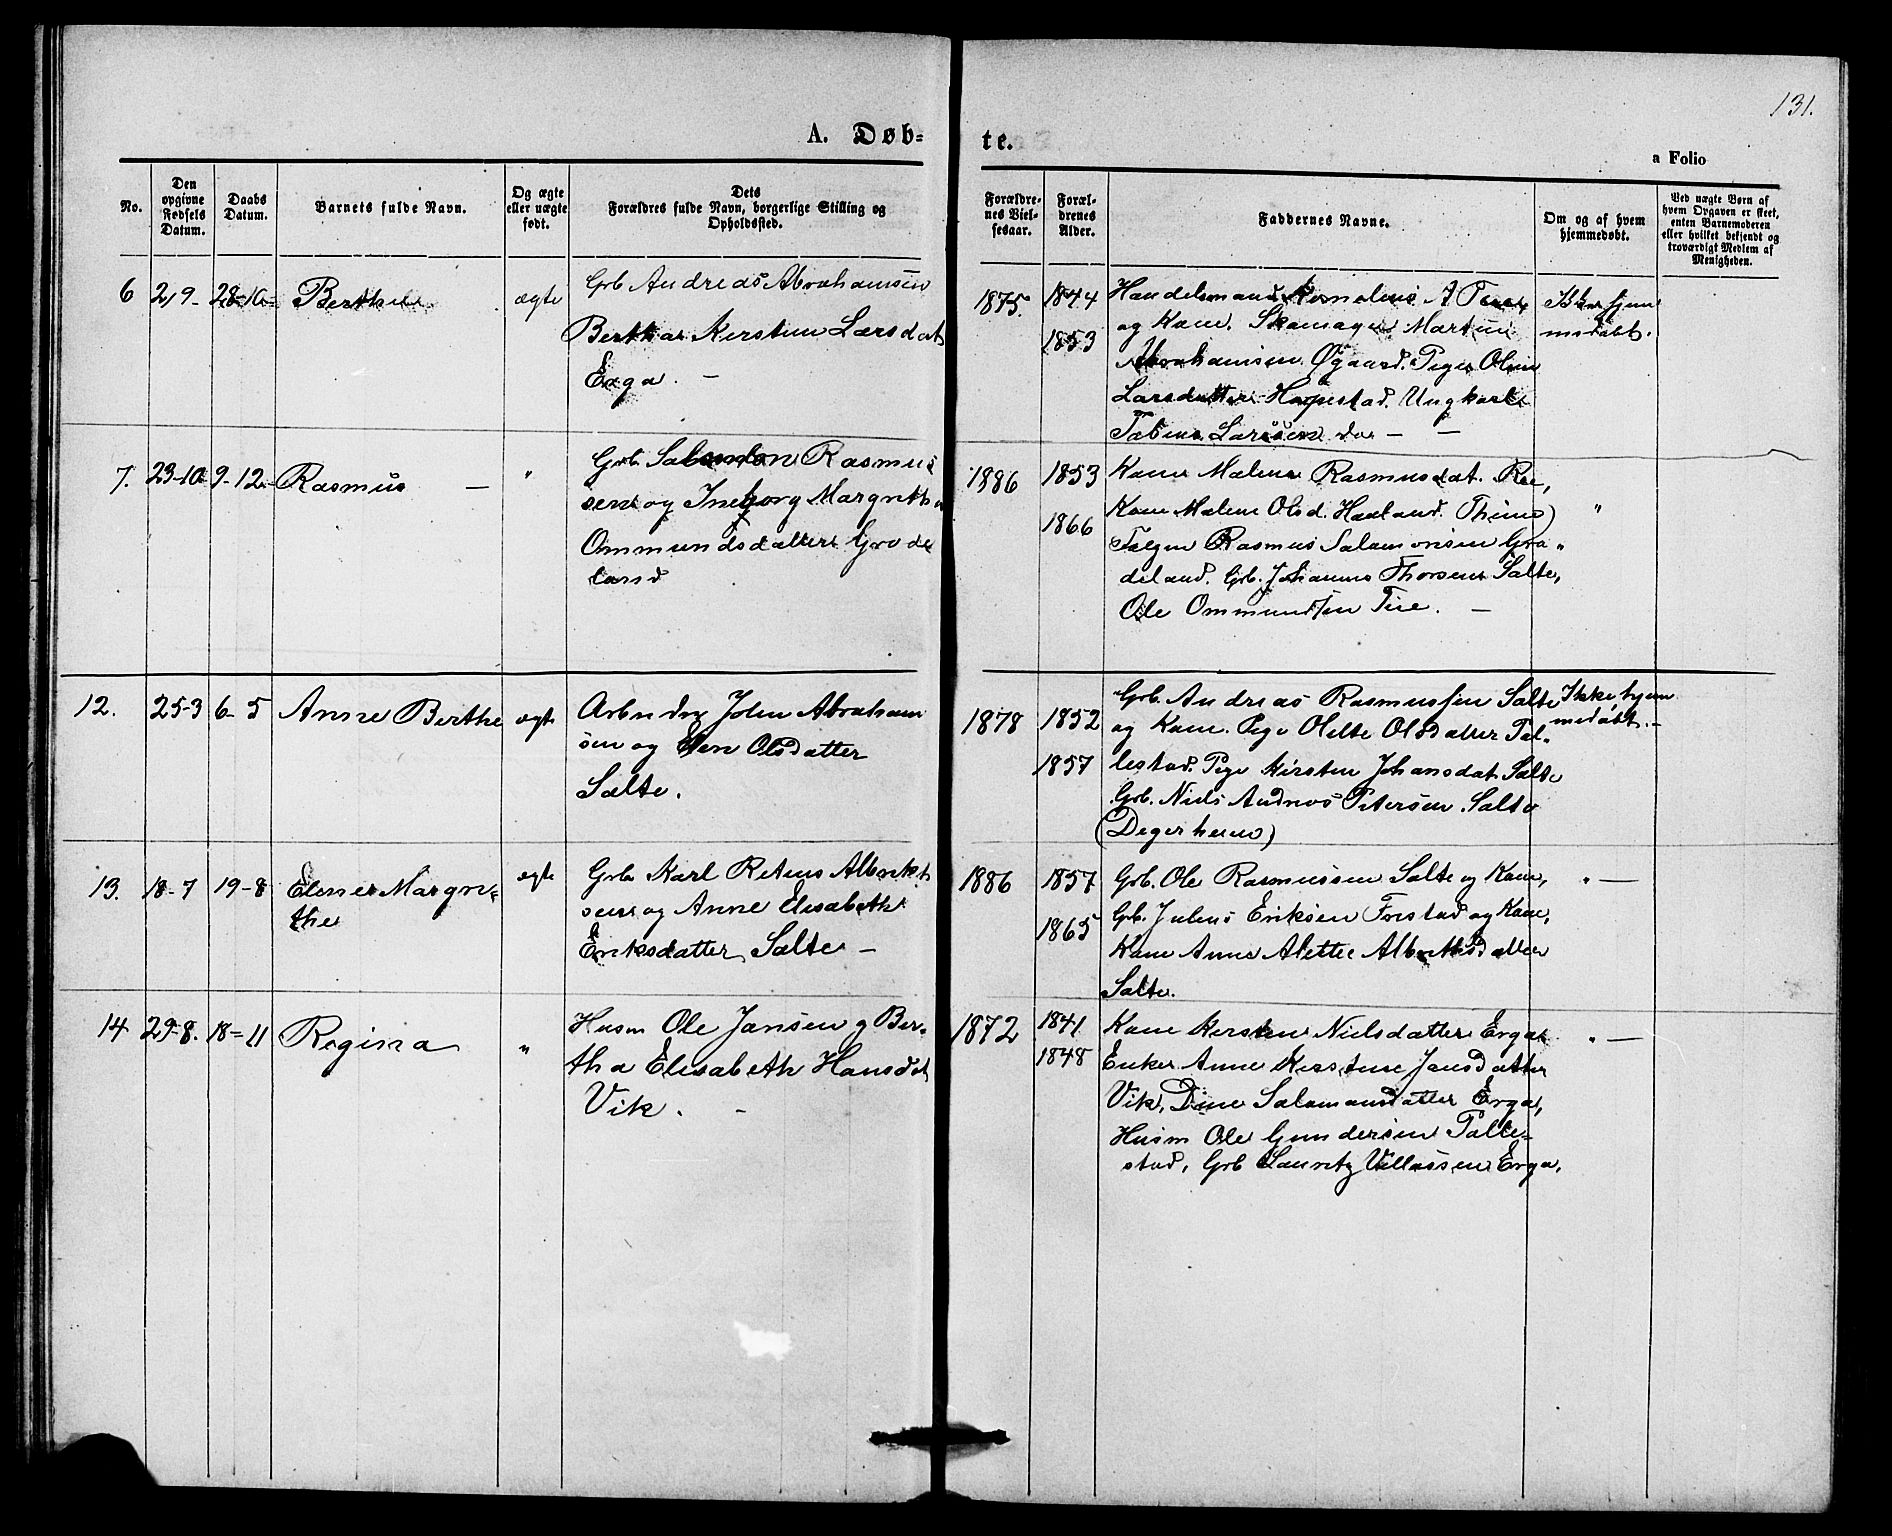 131.
A. Døb-
te.
a Folio
No.
Den opgivne Fødsels Datum.
Daabs Datum.
Barnets fulde Navn.
Og ægte eller uægte født.
Dets Forældres fulde Navn, borgerlige Stilling og Opholdssted.
Forældrenes Vielsesaar.
Forældrenes Alder.
Faddernes Navne.
Om og af hvem hjemmedøbt.
Ved uægte Børn af hvem Opgaven er skeet, enten Barnemoderen eller hvilket bekjendt og troværdigt Medlem af Menigheden.
6 2/9- 28-10- ægte
Grb Andreas Abrahamsen
Berthar Kerstine Larsdat
Erga. -
1875. 1844
1853
Handelsmand Kornelius A
og Kone. Skomager Martin
Abrahamsen Øgaard. Pige Oline
Larsdatter Hapestad. Ungkarl
Tobias Larssen do - -
Ikke hjem
medøbt.
7. 23-10 9-12- Rasmus - "
Grb. Salomon Rasmus
sen og Ingeborg Margretha
Ommundsdatter Grode
land
1886 1853
1866
Kone Malene Rasmusdat. Ree,
Kone Malene Olsd. Haaland. Thime)
Rasmus Salamonsen Gro-
deland. Grb. Johannes Thorsen Salte,
Ole Ommundsen Tue. -
"
12. 25-3 6-5 Anne Berthe ægte
John Abraham
sen og Elen Olsdatter
Salte.
1878 1852
1857
Grb. Andreas Rasmussen Salte
og Kone. Pige Olette Olsdatter Tal-
lestad. Pige Kirsten Johansdat. Salte
Grb. Niels Andreas Petersen. Salte
(Degerhein)
Ikke hjem
medøbt.-
13. 18-7 19-8 Elene Margre-
the ægte
Grb Karl Reinus Albrikt
sen og Anne Elisabeth
Eriksdatter Salte -
1886 1857
1865
Grb. Ole Rasmussen Salte og Kone,
Grb. Julius Eriksen Frestad og Kone,
Kone Anne Alette Albriktsdatter
Salte.
" -
14 29-8. 18-11 Regina "
Husm Ole Jansen og Ber-
tha Elisabeth Hansdat
Vik. -
1872 1841.
1848
Kone Kersten Nielsdatter Erga
Enke Anne Kerstine Jansdatter
Vik, Dine Salamansdatter Erga,
Husm Ole Gundersen Talle-
stad, Grb Lauritz Villassen Erga.
" -